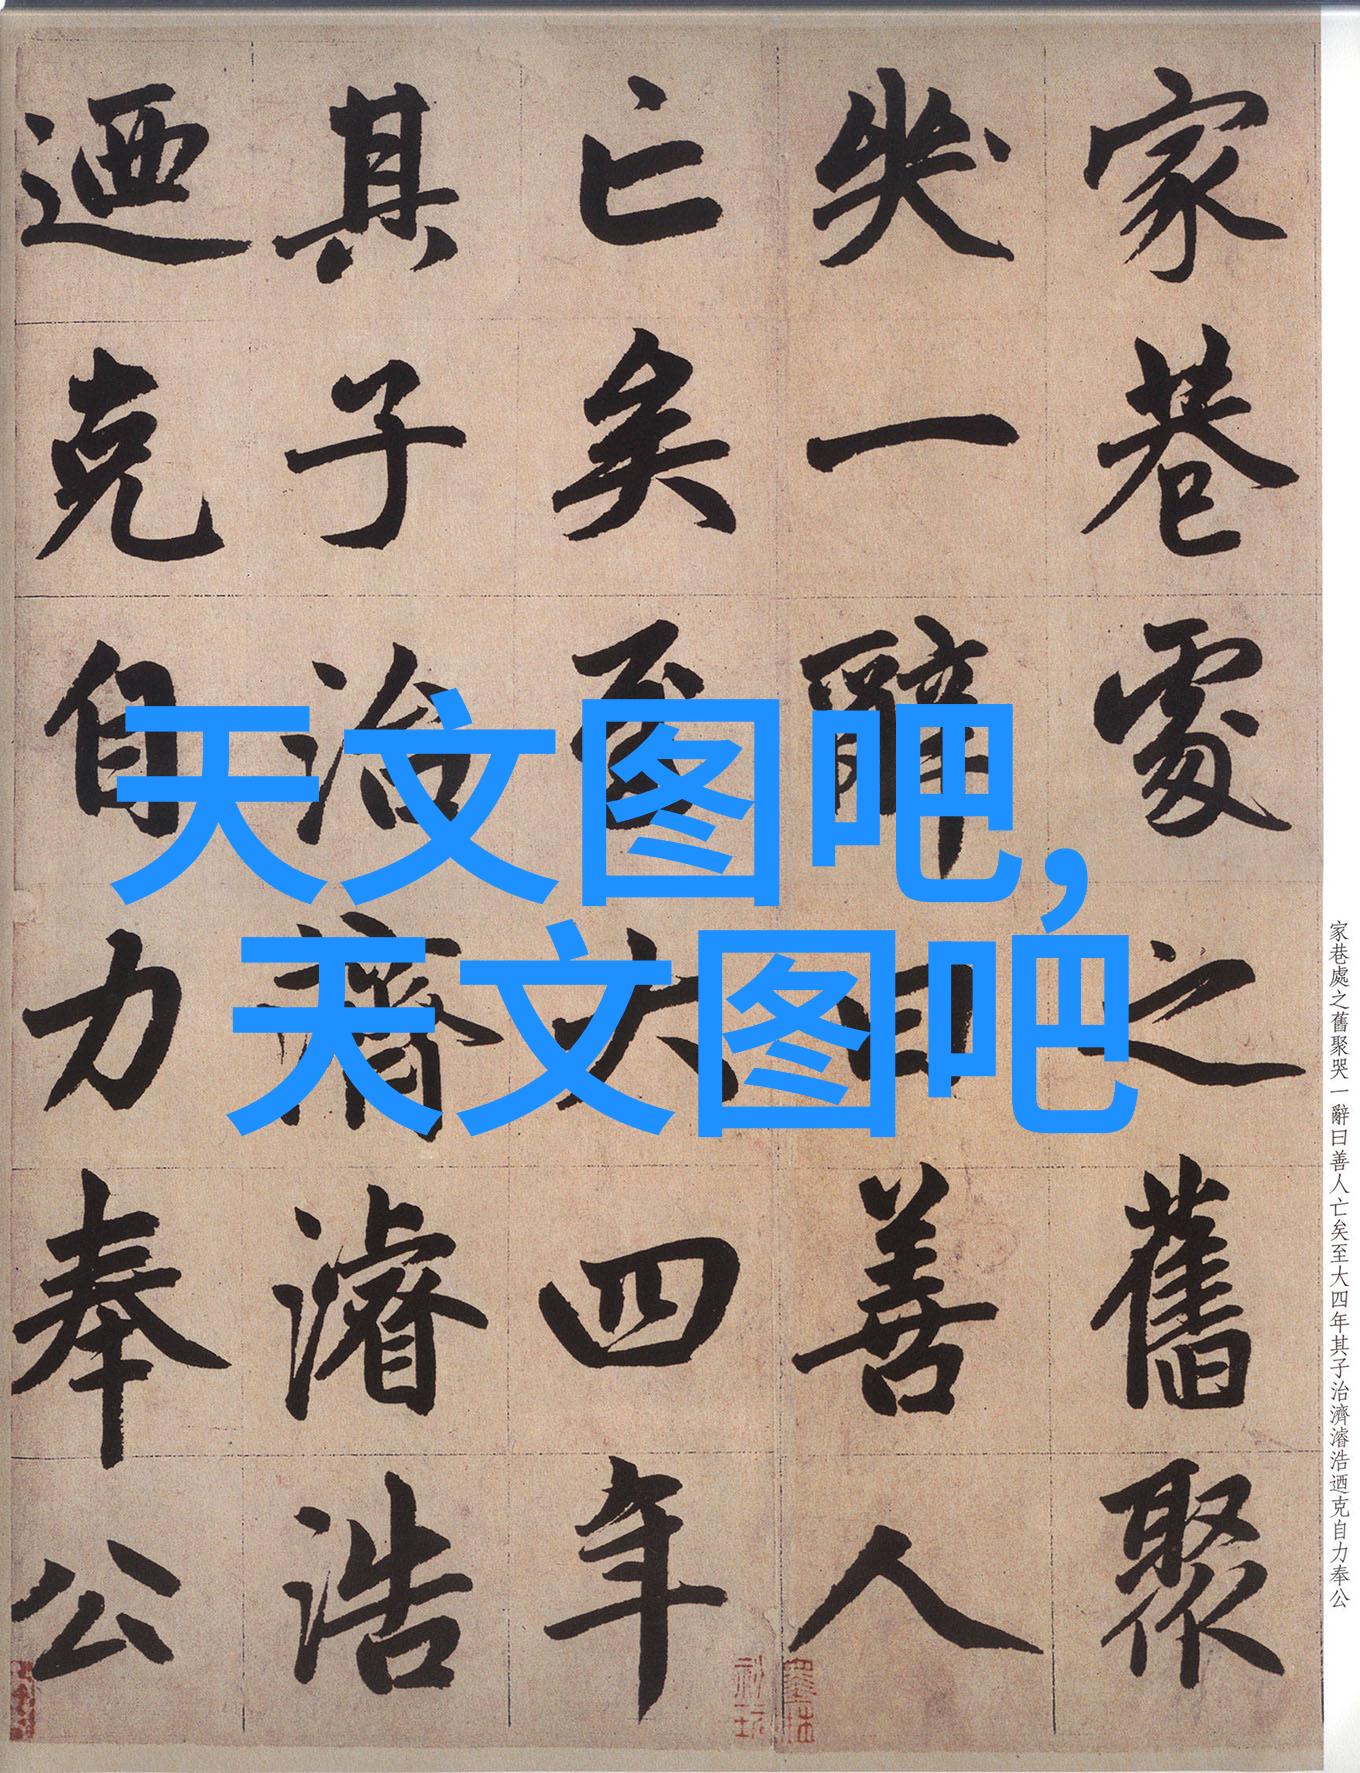 家巷處之舊聚
哭一辭曰善人
亡矣至大四年
其子治濟濬浩
迺克自力奉公
天文图吧,
天文图吧
家巷處之舊聚哭一辭曰善人亡矣至大四年其子治濟濬浩迺克自力奉公